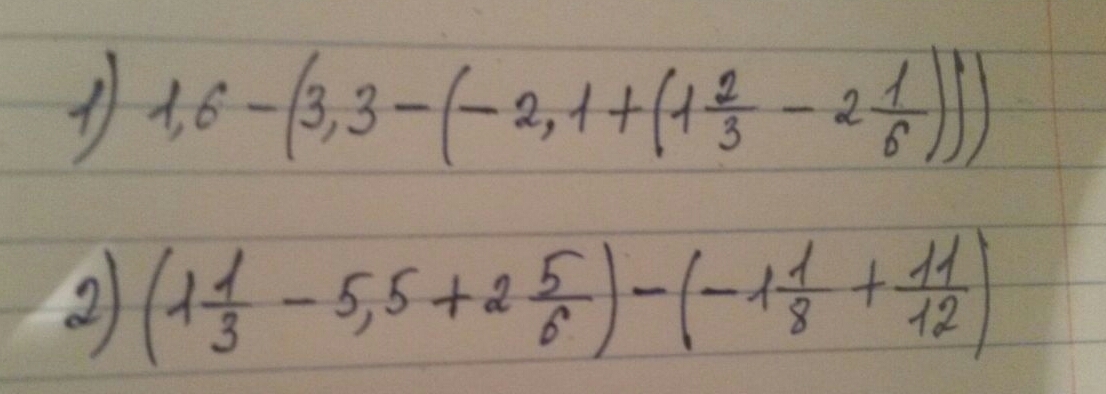 1) 1,6 − (3,3 − (−2,1 + (1 2/3 − 2 1/6)))
2) (1 1/3 − 5,5 + 2 5/6) − (−1 1/8 + 11/12)